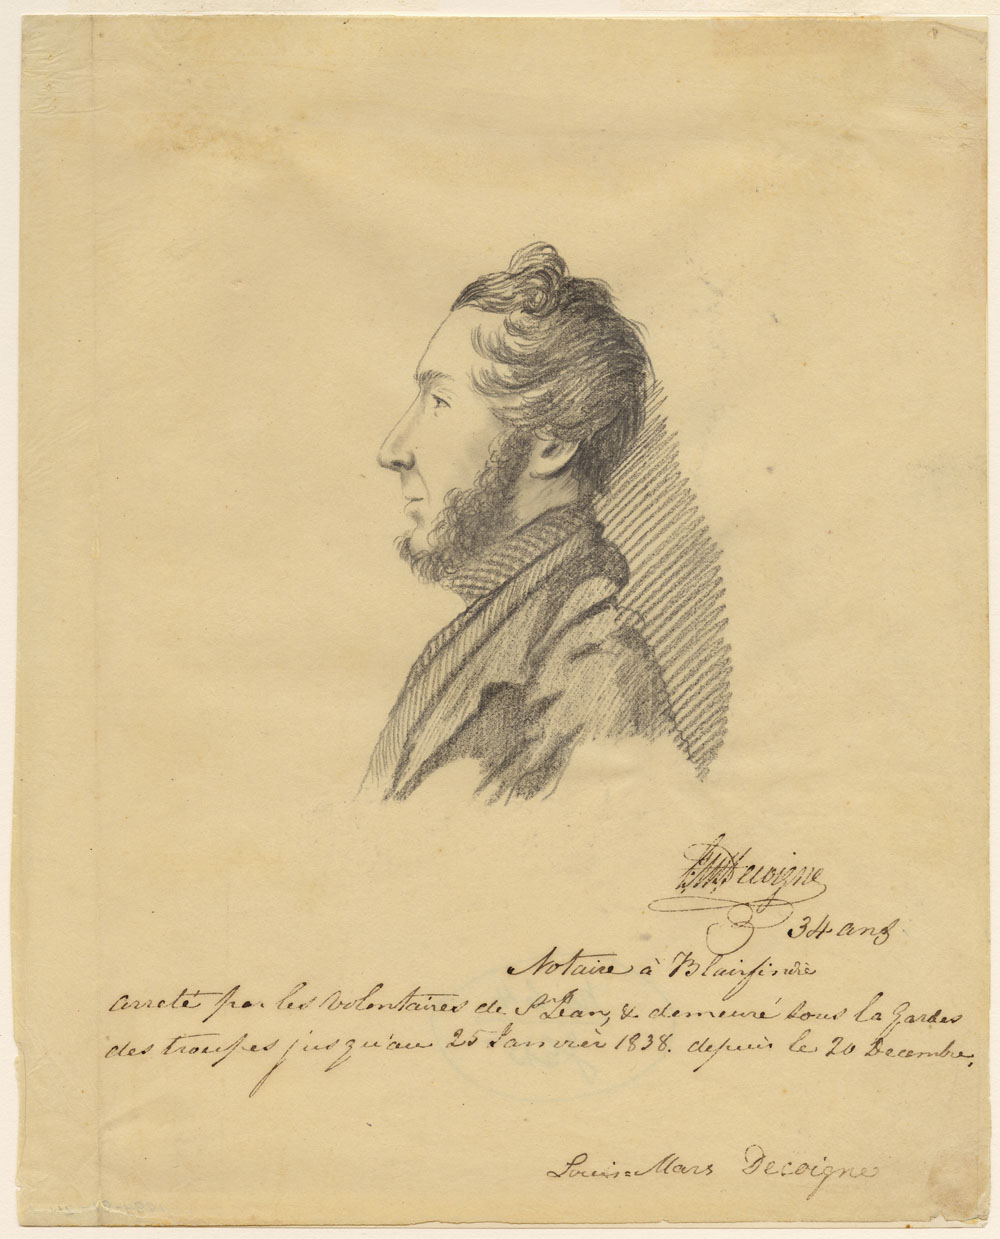 LMDecoigne
34 ans
Notaire à Blairfindie
arreté par les Volontaires de St. Jean, & demeuré sous la Gardes
des troupes jusqu'au 25 Janvier 1838. depuis le 20 Decembre,
Louis=Mars Decoigne